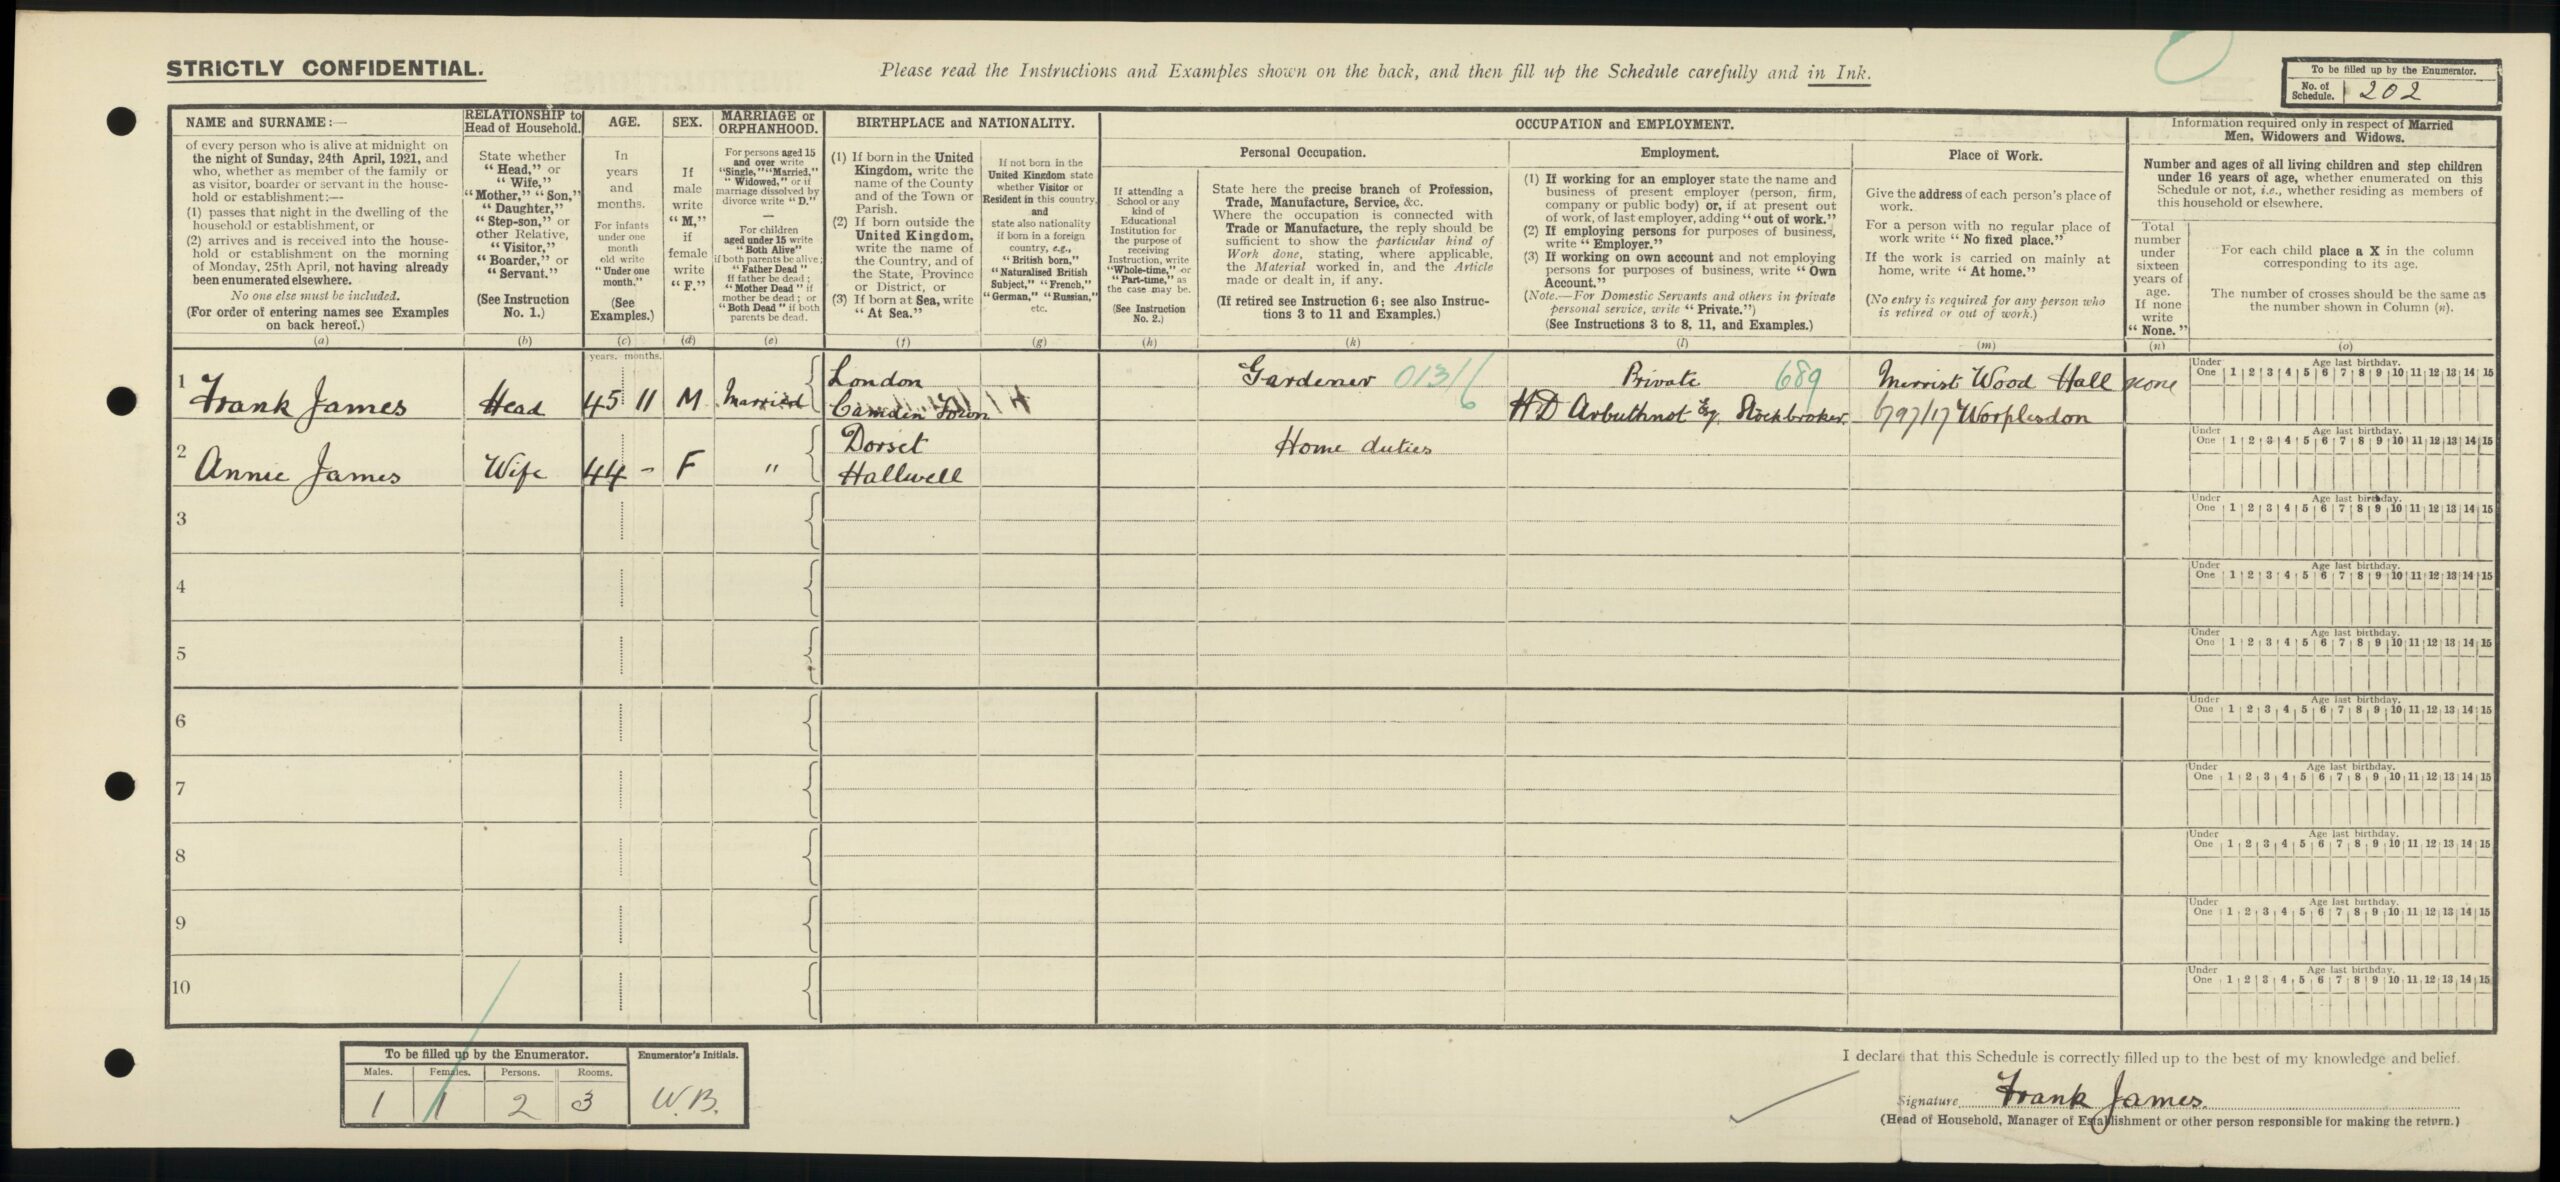 STRICTLY CONFIDENTIAL.
Please read the Instructions and Examples shown on the back, and then fill up the Schedule carefully and in Ink.
To be filled up by the Enumerator.
No. of Schedule. 202
NAME and SURNAME:—
of every person who is alive at midnight on
the night of Sunday, 24th April, 1921, and
who, whether as member of the family or
as visitor, boarder or servant in the house-
hold or establishment:—
(1) passes that night in the dwelling of the
household or establishment, or
(2) arrives and is received into the house-
hold or establishment on the morning
of Monday, 25th April, not having already
been enumerated elsewhere.
No one else must be included.
(For order of entering names see Examples
on back hereof.)
(a)
RELATIONSHIP to
Head of Household.
State whether
"Head," or
"Wife,"
"Mother," "Son,"
"Daughter,"
"Step-son," or
other Relative,
"Visitor,"
"Boarder," or
"Servant."
(See Instruction
No. 1.)
(b)
AGE.
In
years
and
months.
For infants
under one
month
old write
"Under one
month."
(See
Examples.)
(c)
SEX.
If
male
write
"M,"
if
female
write
"F."
(d)
MARRIAGE or
ORPHANHOOD.
For persons aged 15
and over write
"Single," "Married,"
"Widowed," or if
marriage dissolved by
divorce write "D."
—
For children
aged under 15 write
"Both Alive"
if both parents be alive;
"Father Dead"
if father be dead;
"Mother Dead" if
mother be dead; or
"Both Dead" if both
parents be dead.
(e)
BIRTHPLACE and NATIONALITY.
(1) If born in the United
Kingdom, write the
name of the County
and of the Town or
Parish.
(2) If born outside the
United Kingdom,
write the name of
the Country, and of
the State, Province
or District, or
(3) If born at Sea, write
"At Sea."
(f)
If not born in the
United Kingdom state
whether Visitor or
Resident in this country,
and
state also nationality
if born in a foreign
country, e.g.,
"British born,"
"Naturalised British
Subject," "French,"
"German," "Russian,"
etc.
(g)
OCCUPATION and EMPLOYMENT.
If attending a
School or any
kind of
Educational
Institution for
the purpose of
receiving
Instruction, write
"Whole-time," or
"Part-time," as
the case may be.
(See Instruction
No. 2.)
(h)
Personal Occupation.
State here the precise branch of Profession,
Trade, Manufacture, Service, &c.
Where the occupation is connected with
Trade or Manufacture, the reply should be
sufficient to show the particular kind of
Work done, stating, where applicable,
the Material worked in, and the Article
made or dealt in, if any.
(If retired see Instruction 6; see also Instruc-
tions 3 to 11 and Examples.)
(k)
Employment.
(1) If working for an employer state the name and
business of present employer (person, firm,
company or public body) or, if at present out
of work, of last employer, adding "out of work."
(2) If employing persons for purposes of business,
write "Employer."
(3) If working on own account and not employing
persons for purposes of business, write "Own
Account."
(Note.—For Domestic Servants and others in private
personal service, write "Private.")
(See Instructions 3 to 8, 11, and Examples.)
(l)
Place of Work.
Give the address of each person's place of
work.
For a person with no regular place of
work write "No fixed place."
If the work is carried on mainly at
home, write "At home."
(No entry is required for any person who
is retired or out of work.)
(m)
Information required only in respect of Married
Men, Widowers and Widows.
Number and ages of all living children and step children
under 16 years of age, whether enumerated on this
Schedule or not, i.e., whether residing as members of
this household or elsewhere.
Total
number
under
sixteen
years of
age.
If none
write
"None."
(n)
For each child place a X in the column
corresponding to its age.
The number of crosses should be the same as
the number shown in Column (n).
(o)
years. months.
1 Frank James Head 45 11 M Married London Camden Town Gardener 013/6 Private 689 H D Arbuthnot Esq. Stockbroker. Merrist Wood Hall 6797/17 Worplesdon none
Under One Age last birthday. 1 2 3 4 5 6 7 8 9 10 11 12 13 14 15
2 Annie James Wife 44 - F " Dorset Hallwell Home duties
Under One Age last birthday. 1 2 3 4 5 6 7 8 9 10 11 12 13 14 15
3
Under One Age last birthday. 1 2 3 4 5 6 7 8 9 10 11 12 13 14 15
4
Under One Age last birthday. 1 2 3 4 5 6 7 8 9 10 11 12 13 14 15
5
Under One Age last birthday. 1 2 3 4 5 6 7 8 9 10 11 12 13 14 15
6
Under One Age last birthday. 1 2 3 4 5 6 7 8 9 10 11 12 13 14 15
7
Under One Age last birthday. 1 2 3 4 5 6 7 8 9 10 11 12 13 14 15
8
Under One Age last birthday. 1 2 3 4 5 6 7 8 9 10 11 12 13 14 15
9
Under One Age last birthday. 1 2 3 4 5 6 7 8 9 10 11 12 13 14 15
10
Under One Age last birthday. 1 2 3 4 5 6 7 8 9 10 11 12 13 14 15
To be filled up by the Enumerator. Enumerator's Initials.
Males. Females. Persons. Rooms.
1 1 2 3 W.B.
I declare that this Schedule is correctly filled up to the best of my knowledge and belief.
Signature Frank James.
(Head of Household, Manager of Establishment or other person responsible for making the return.)